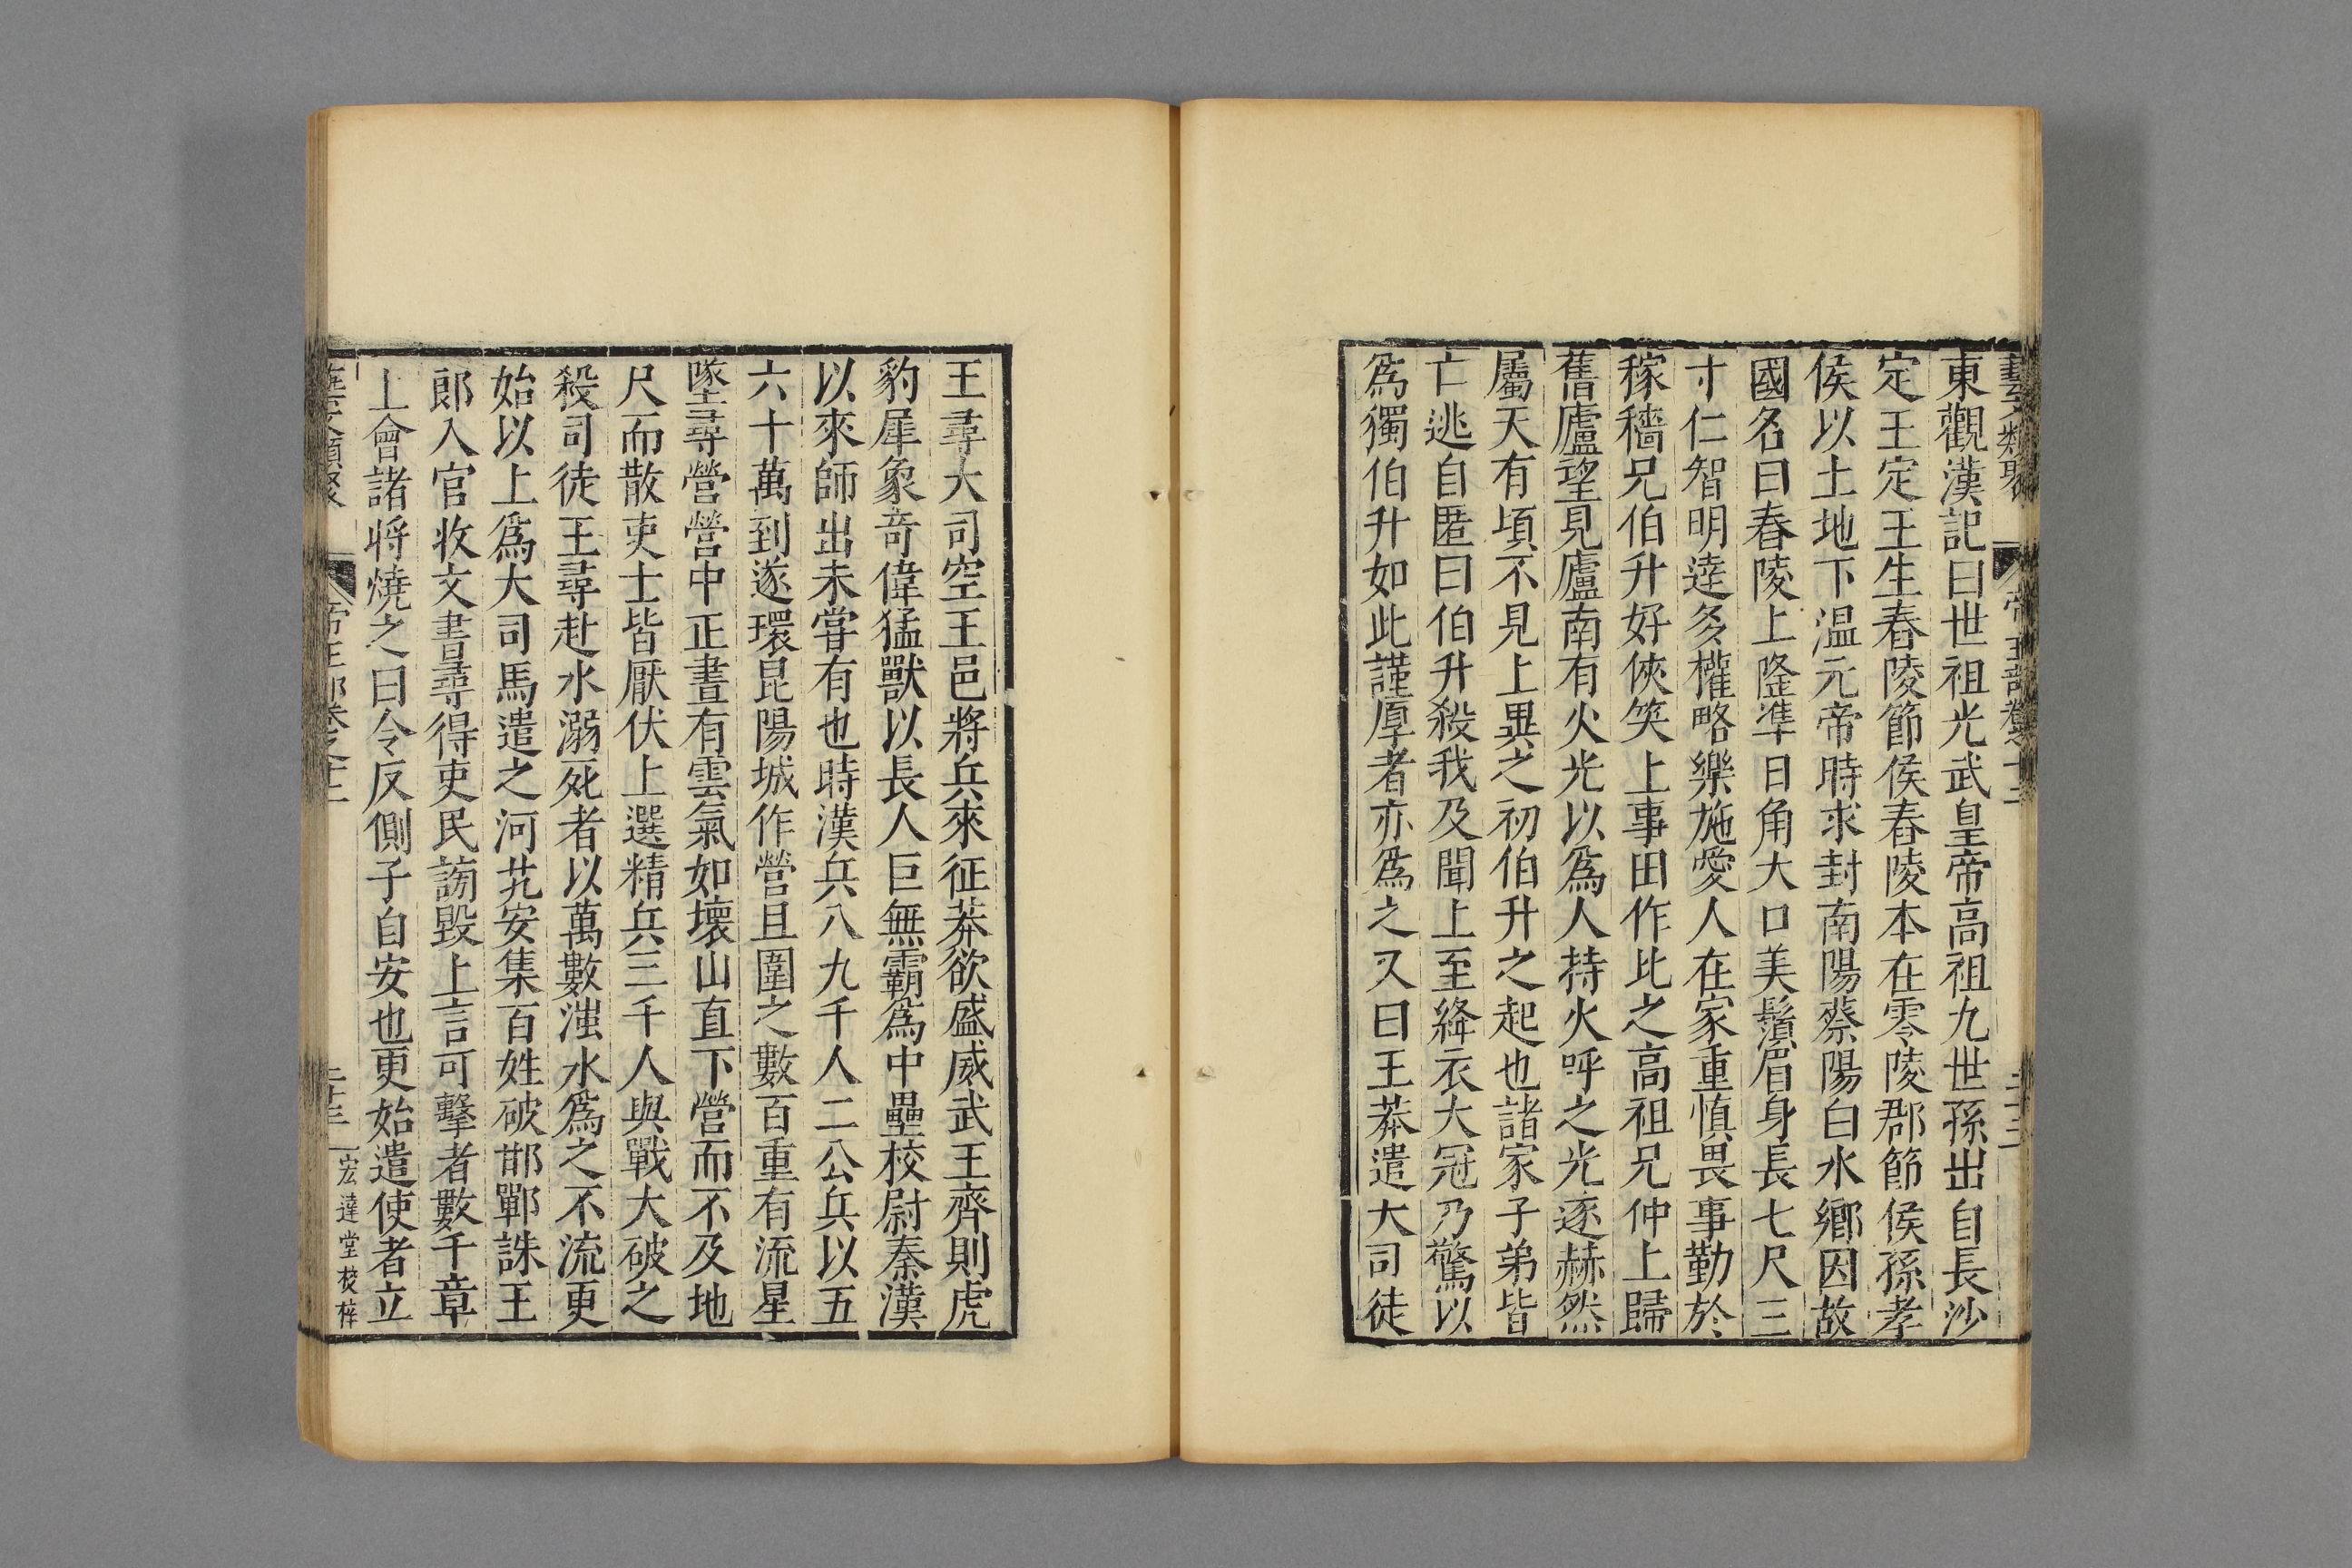 藝文類聚 帝王部卷十二
東觀漢記曰世祖光武皇帝高祖九世孫出自長沙
定王定王生舂陵節侯舂陵本在零陵郡節侯孫孝
侯以土地下溫元帝時求封南陽蔡陽白水鄉因故
國名曰舂陵上隆準日角大口美鬚眉身長七尺三
寸仁智明達多權略樂施愛人在家重慎畏事勤於
稼穡兄伯升好俠笑上事田作比之高祖兄仲上歸
舊廬望見廬南有火光以爲人持火呼之光逐赫然
屬天有頃不見上異之初伯升之起也諸家子弟皆
亡逃自匿曰伯升殺我及聞上至絳衣大冠乃驚以
爲獨伯升如此謹厚者亦爲之又曰王莽遣大司徒
王尋大司空王邑將兵來征莽欲盛威武王齊則虎
豹犀象奇偉猛獸以長人巨無霸爲中壘校尉秦漢
以來師出未甞有也時漢兵八九千人二公兵以五
六十萬到遂環昆陽城作營且圍之數百重有流星
墜尋營營中正晝有雲氣如壞山直下營而不及地
尺而散吏士皆厭伏上選精兵三千人與戰大破之
殺司徒王尋赴水溺死者以萬數滍水爲之不流更
始以上爲大司馬遣之河北安集百姓破邯鄲誅王
郎入官收文書尋得吏民謗毀上言可擊者數千章
上會諸将燒之曰令反側子自安也更始遣使者立
藝文類聚 帝王部卷之十二 宏達堂校梓